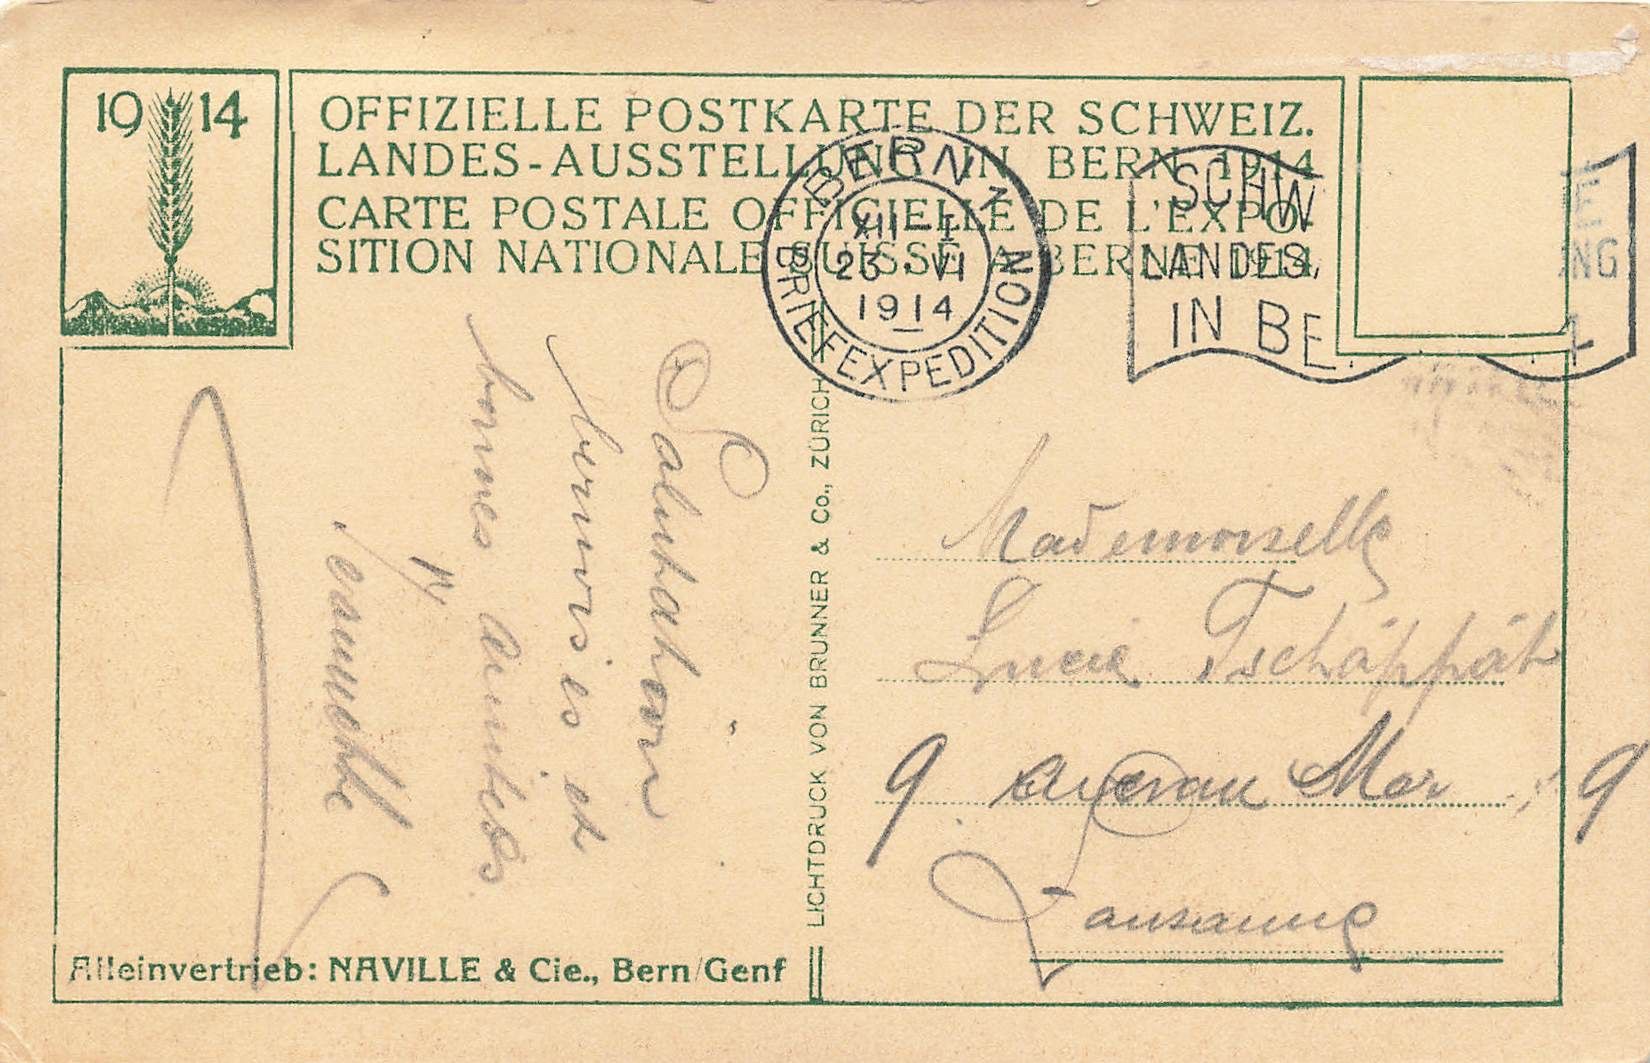 1914
OFFIZIELLE POSTKARTE DER SCHWEIZ.
LANDES-AUSSTELLUNG IN BERN 1914
CARTE POSTALE OFFICIELLE DE L'EXPO-
SITION NATIONALE SUISSE A BERNE 1914
BERN 1
XII-I
23·VI
1914
BRIEFEXPEDITION
SCHW
LANDES.
NG
IN BE
Salutations
bernoises et
bonnes amitiés
Jeannette
LICHTDRUCK VON BRUNNER & Co., ZÜRICH
Mademoiselle
Lucie Tschäppät
9. 9
Lausanne
Alleinvertrieb: NAVILLE & Cie., Bern/Genf